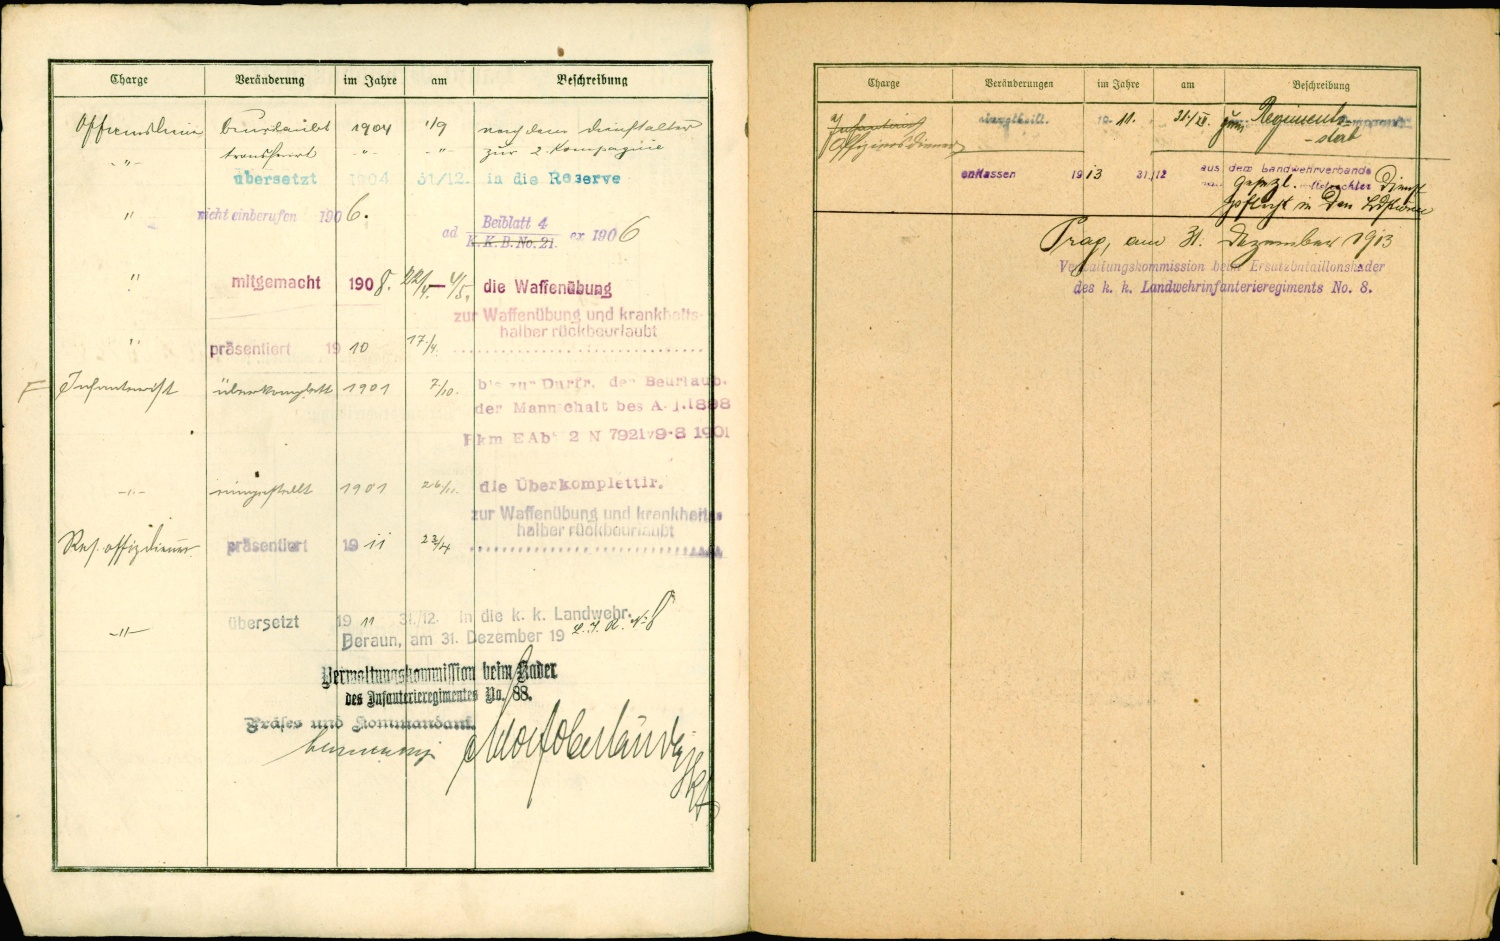 Charge Veränderung im Jahre am Beschreibung
beurlaubt 1904 1/9 nach dem
transferirt -"- -"- zur 2. Kompagnie
übersetzt 1904 31/12. in die Reserve
" nicht einberufen 1906.
ad Beiblatt 4 K. K. B. No. 21. ex 1906
" mitgemacht 1908. 22/4. — 4/5. die Waffenübung
zur Waffenübung und krankheits-
halber rückbeurlaubt
" präsentiert 1910 17./4.
Infanterist überkomplett 1901 7/10. bis zur Durfr. der Beurlaub.
der Mannschaft des A. J. 1898
Rkm EAbt 2 N 7921 v 9-8 1901
-"- eingestellt 1901 26/11. die Überkomplettir.
zur Waffenübung und krankheits-
halber rückbeurlaubt
Res. offizdiener präsentiert 1911 23/4
-"- übersetzt 1911 31./12. in die k. k. Landwehr.
L. I. R. No 8
Beraun, am 31. Dezember 19
Verwaltungskommission beim Kader
des Infanterieregimentes No. 88.
Präses und Kommandant.
Charge Veränderungen im Jahre am Beschreibung
Infanterist zugetheilt. 1911. 31/XII. zum Regiments-
Offiziersdiener -stab
entlassen 1913 31/12 aus dem Landwehrverbande
nach gesetzl. vollstreckter Dienst
pflicht in den
Prag, am 31. Dezember 1913
Verwaltungskommission beim Ersatzbataillonskader
des k. k. Landwehrinfanterieregiments No. 8.